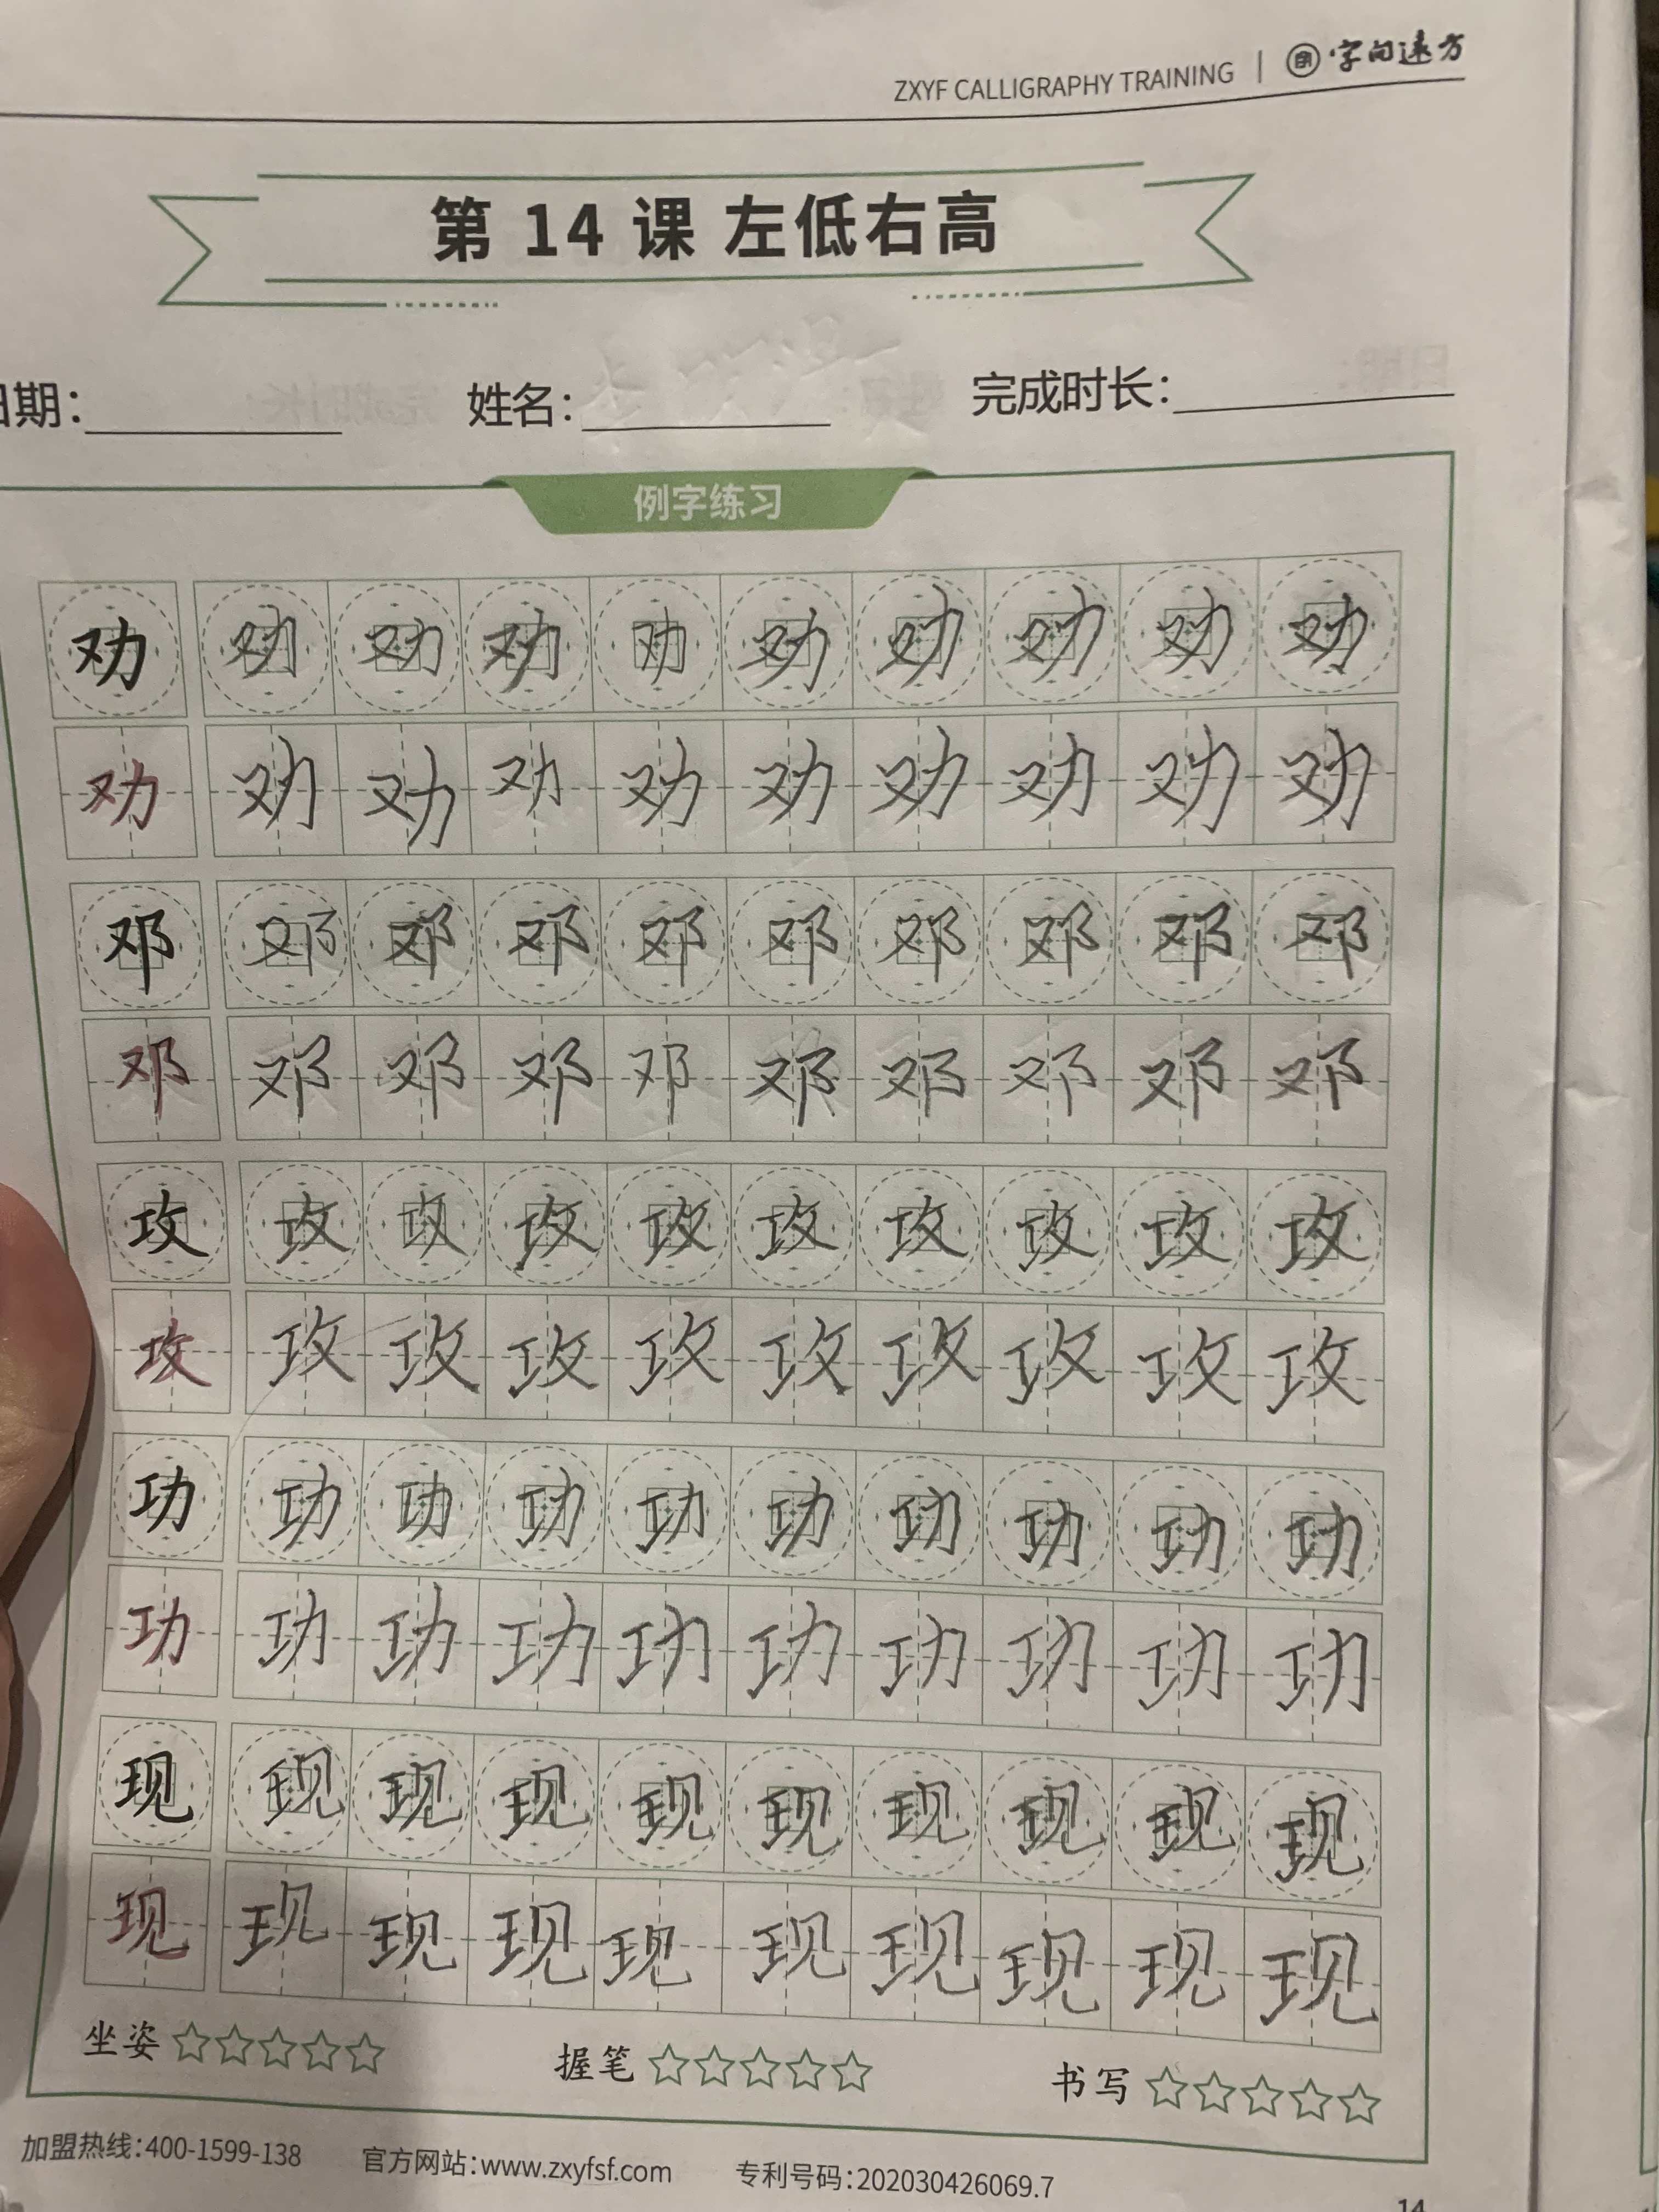 ZXYF CALLIGRAPHY TRAINING | 字向远方
第 14 课 左低右高
日期： 姓名： 完成时长：
例字练习
劝 劝 劝 劝 劝 劝 劝 劝 劝 劝
劝 劝 劝 劝 劝 劝 劝 劝 劝 劝
邓 邓 邓 邓 邓 邓 邓 邓 邓 邓
邓 邓 邓 邓 邓 邓 邓 邓 邓 邓
攻 攻 攻 攻 攻 攻 攻 攻 攻 攻
攻 攻 攻 攻 攻 攻 攻 攻 攻 攻
功 功 功 功 功 功 功 功 功 功
功 功 功 功 功 功 功 功 功 功
现 现 现 现 现 现 现 现 现 现
现 现 现 现 现 现 现 现 现 现
坐姿 握笔 书写
加盟热线：400-1599-138 官方网站：www.zxyfsf.com 专利号码：202030426069.7
14